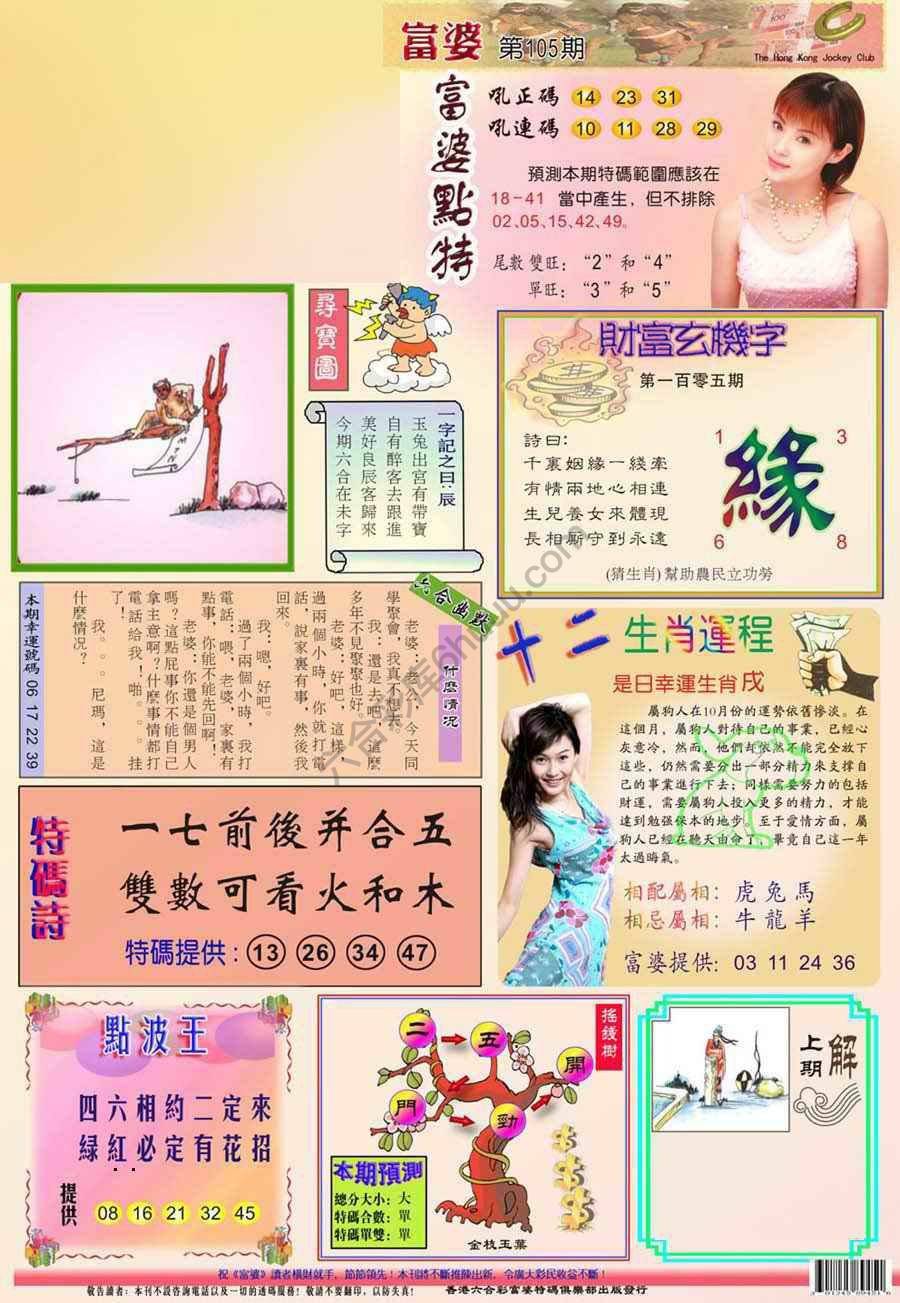 富婆 第105期
The Hong Kong Jockey Club
富婆點特
吼正碼 14 23 31
吼連碼 10 11 28 29
預測本期特碼範圍應該在
18-41 當中產生，但不排除
02、05、15、42、49。
尾數雙旺：“2”和“4”
單旺：“3”和“5”
尋寶圖
一字記之曰：辰
玉兔出宮有帶寶
自有醉客去跟進
美好良辰客歸來
今期六合在未字
財富玄機字
第一百零五期
詩曰：
千裏姻緣一綫牽
有情兩地心相連
生兒養女來體現
長相厮守到永遠
1 3
緣
6 8
(猜生肖)幫助農民立功勞
六合幽默
什麼情况
老婆：老公，今天同
學聚會，我真不想去。
我：還是去吧，這麼
多年不見聚聚也好。
老婆：好吧，這樣，
過兩個小時，你就打電
話，說家裏有事，然後我
回來。
我：嗯，好吧。
過了兩個小時，我打
電話：喂，老婆，家裏有
點事，你能不能先回啊！
老婆：你還是個男人
嗎？這點屁事你不能自己
拿主意啊？什麼事情都打
電話給我！啪。。。挂
了！
我。。。尼瑪，這是
什麼情况？
本期幸運號碼 06 17 22 39
十二生肖運程
是日幸運生肖戌
屬狗人在10月份的運勢依舊慘淡。在
這個月，屬狗人對待自己的事業，已經心
灰意冷，然而，他們却依然不能完全放下
這些，仍然需要分出一部分精力來支撑自
己的事業進行下去；同樣需要努力的包括
財運，需要屬狗人投入更多的精力，才能
達到勉强保本的地步。至于愛情方面，屬
狗人已經在聽天由命了，畢竟自己這一年
太過晦氣。
相配屬相：虎兔馬
相忌屬相：牛龍羊
富婆提供：03 11 24 36
特碼詩
一七前後并合五
雙數可看火和木
特碼提供：13 26 34 47
點波王
四六相約二定來
緑紅必定有花招
提供 08 16 21 32 45
搖錢樹
二 五 開
門 勁
本期預測
總分大小：大
特碼合數：單
特碼單雙：單
金枝玉葉
上期解
祝《富婆》讀者橫財就手，節節領先！本刊將不斷推陳出新，令廣大彩民收益不斷！
敬告讀者：本刊不設咨詢電話以及一切的透碼服務！敬請不要翻印，以防失真！ 香港六合彩富婆特碼俱樂部出版發行